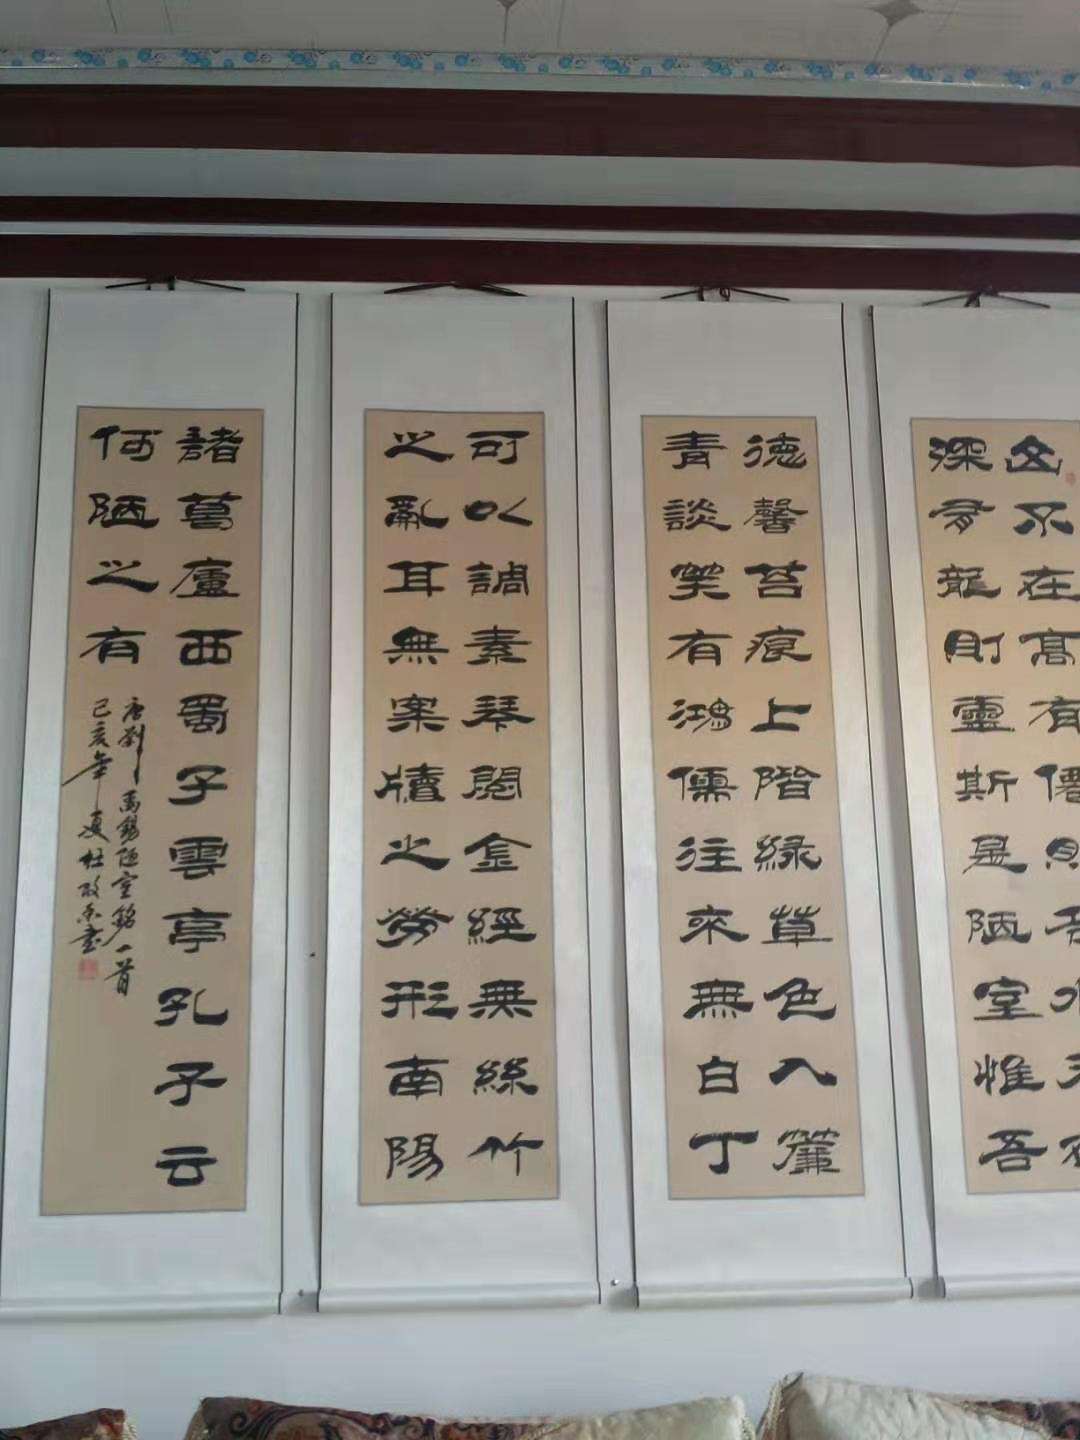 山不在高有僊則名水不在
深有龍則靈斯是陋室惟吾
德馨苔痕上階緑草色入簾
青談笑有鴻儒往來無白丁
可以調素琴閱金經無絲竹
之亂耳無案牘之勞形南陽
諸葛廬西蜀子雲亭孔子云
何陋之有
唐劉禹錫陋室銘一首
己亥年夏杜書